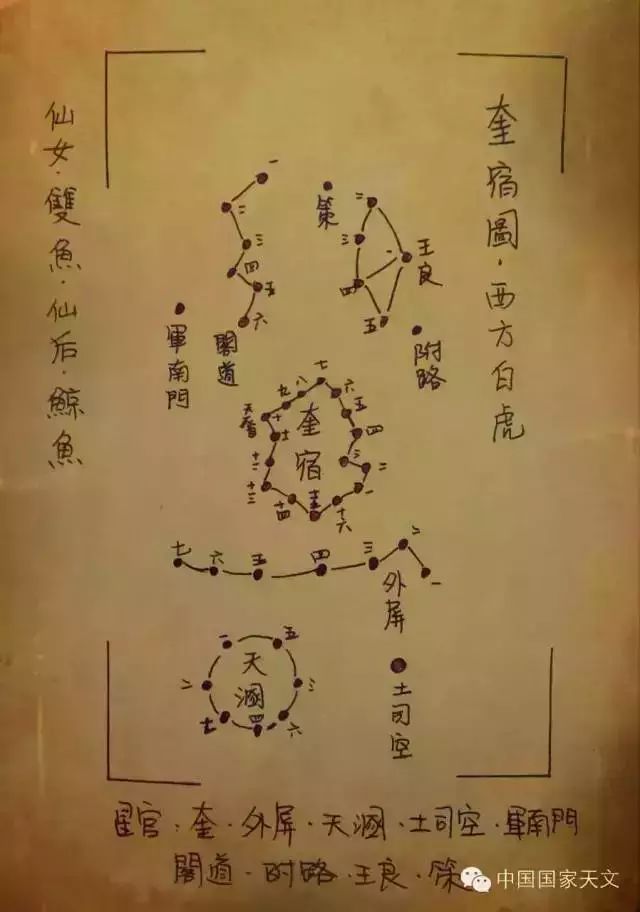 奎宿圖·西方白虎
仙女·雙魚·仙后·鯨魚
一
二
三
四
五
六
閣道
策
二
三
一
王良
四
五
附路
軍南門
七
八
六
九
五
十
四
奎宿
三
二
十二
一
十三
十四
十五
十六
七
六
五
四
三
二
一
外屏
一
五
二
三
七
四
六
天溷
土司空
星官·奎·外屏·天溷·土司空·軍南門
閣道·附路·王良·策
中国国家天文